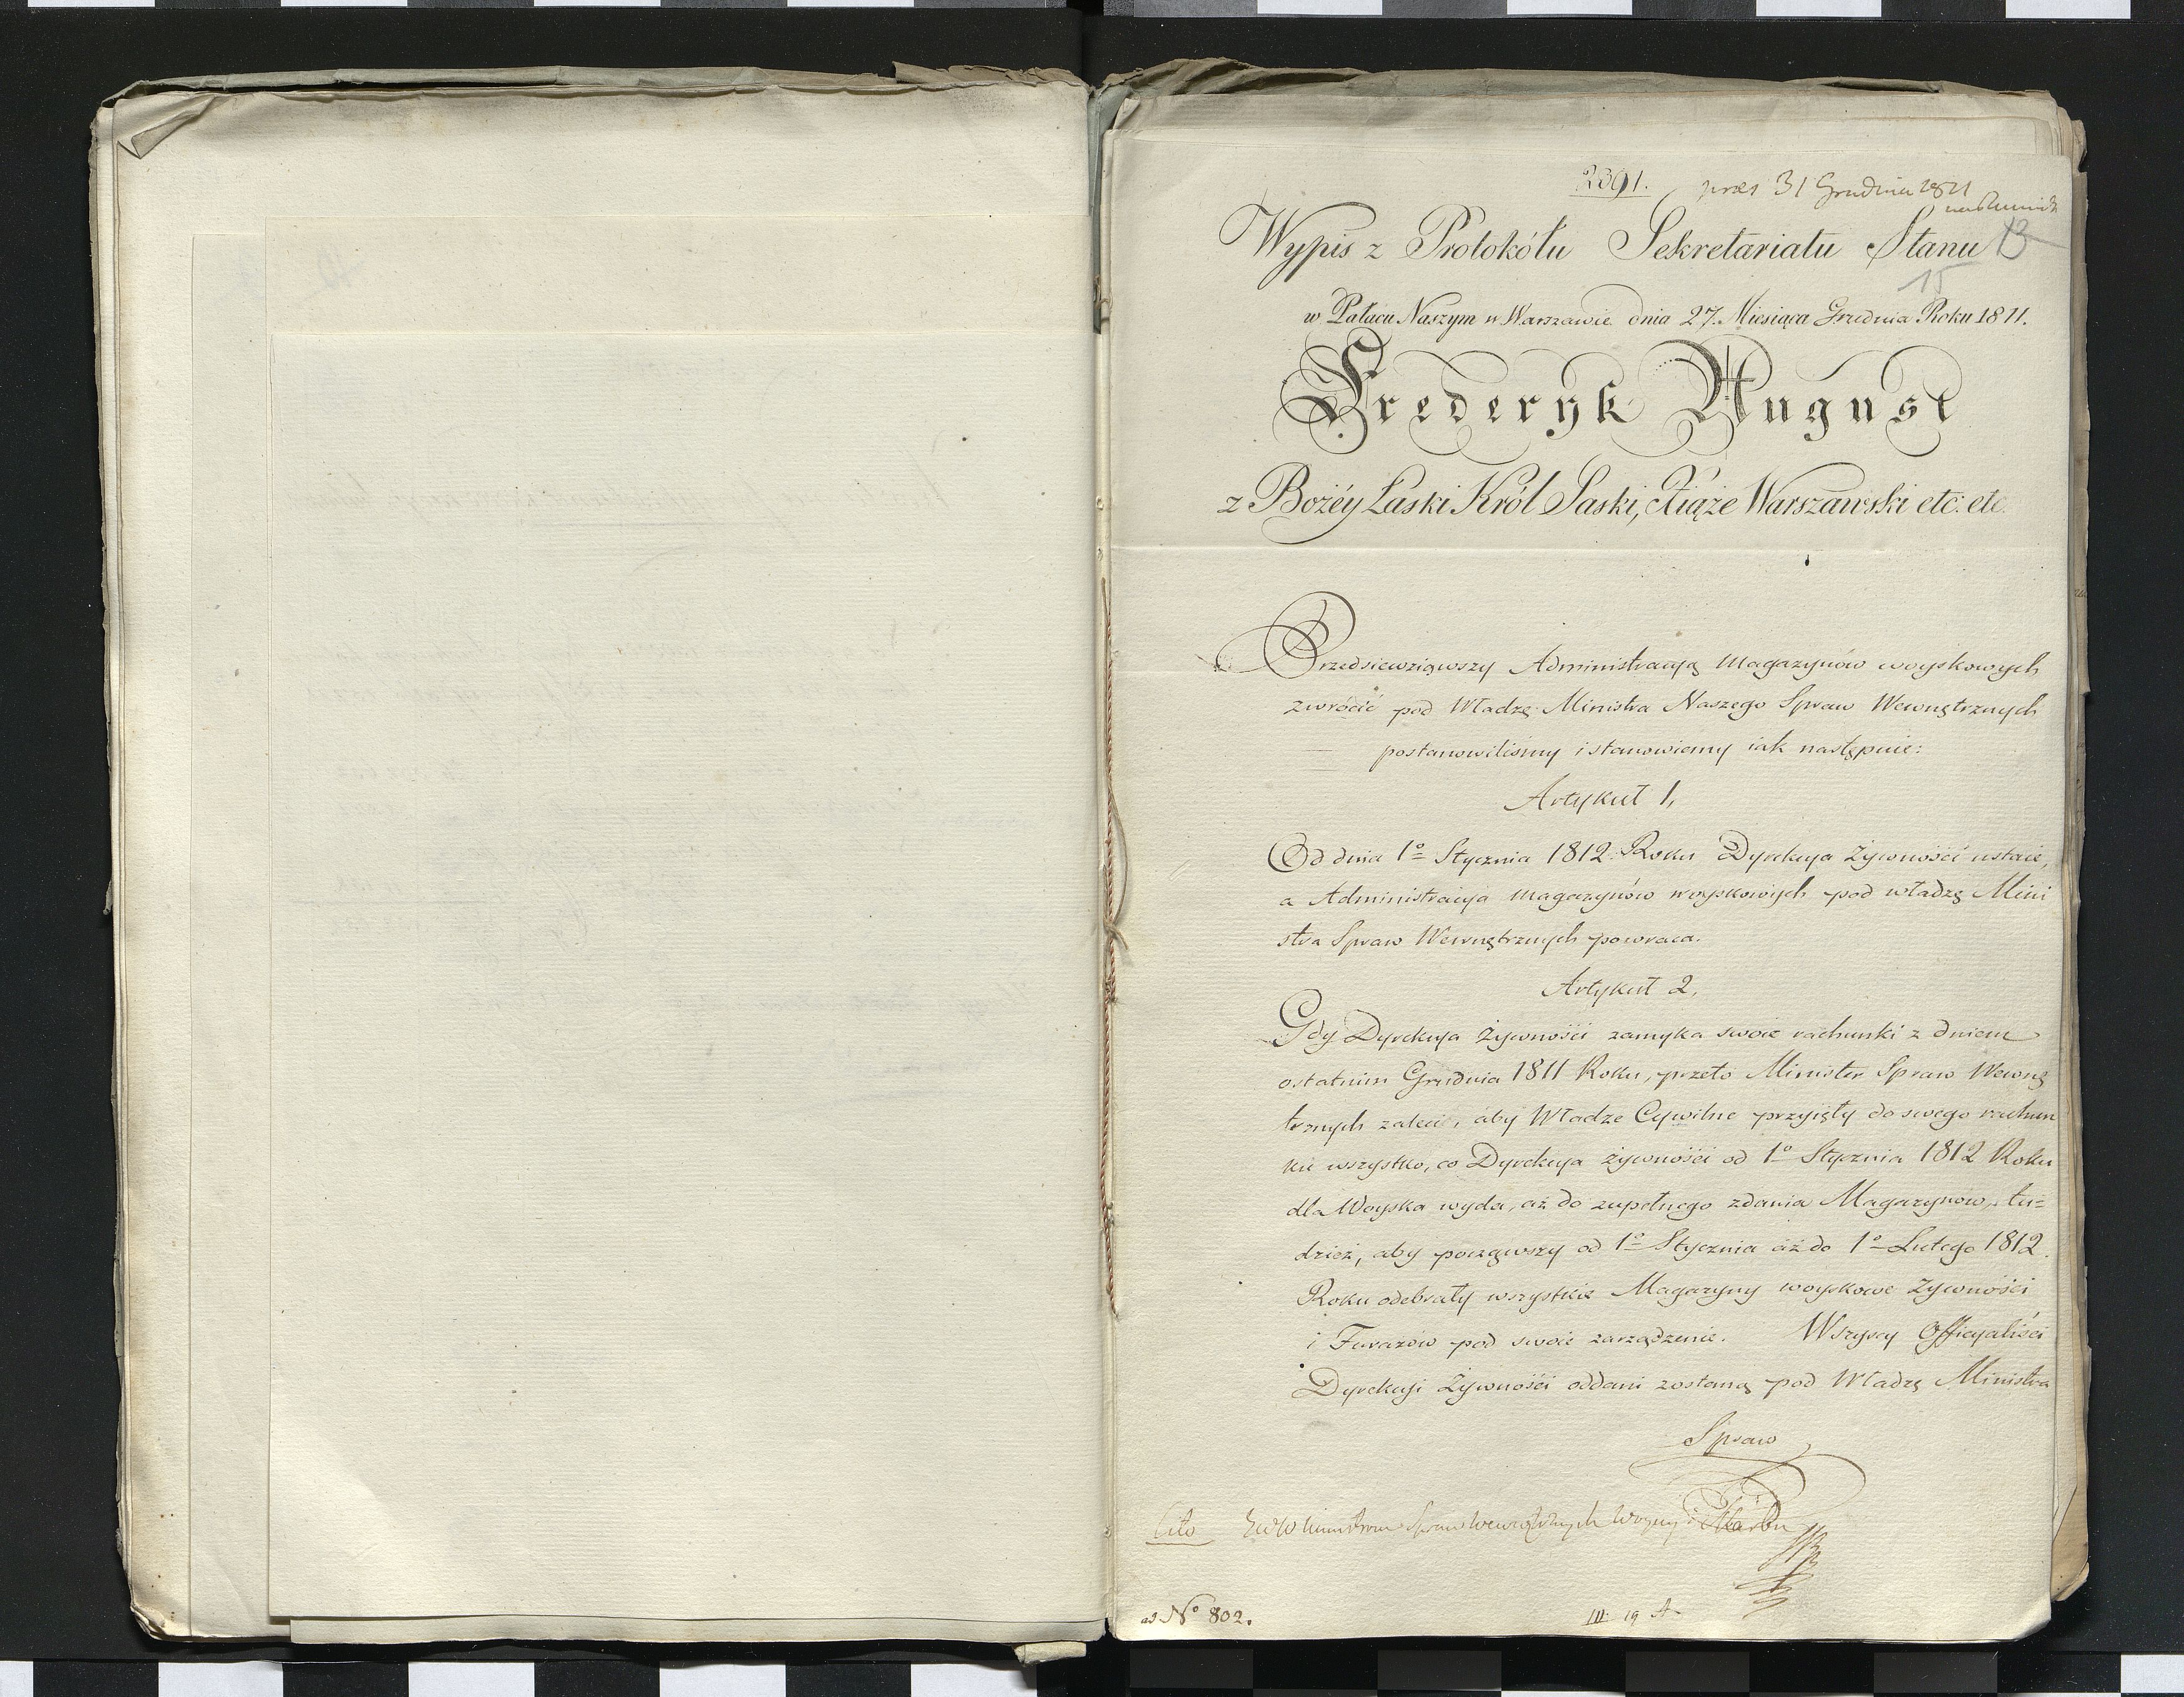 2391. prez 31 Grudnia 1811
Wypis z Protokółu Sekretariatu Stanu 13
15
w Pałacu Naszym w Warszawie dnia 27. Miesiąca Grudnia Roku 1811.
Frederyk August
z Bożéy Łaski Król Saski, Xiąże Warszawski etc: etc.
Przedsiewziąwszy Administracyą Magazynów woyskowych
zwrócić pod Władzę Ministra Naszego Spraw Wewnętrznych
postanowiliśmy i stanowiemy iak następuie:
Artykuł 1,
Od dnia 1º Stycznia 1812. Roku Dyrekcya Żywności ustaie,
a Administracya magazynów woyskowych pod władzę Mini
stra Spraw Wewnętrznych powraca.
Artykuł 2.
Gdy Dyrekcya Żywności zamyka swoie rachunki z dniem
ostatnim Grudnia 1811 Roku, przeto Minister Spraw Wewnę
trznych zaleci, aby Władze Cywilne przyięły do swego rachun
ku wszystko, co Dyrekcya żywności od 1º Stycznia 1812 Roku
dla Woyska wyda, aż do zupełnego zdania Magazynów, tu=
dzież, aby począwszy od 1º Stycznia aż do 1º Lutego 1812.
Roku odebrały wszystkie Magazyny woyskowe Żywności
i Furażów pod swoie zarządzenie. Wszyscy Officyaliści
Dyrekcyi Żywności oddani zostaną pod Władzę Ministra
Spraw
Cito JWW Ministrom Spraw Wewnętrznych Woyny i Skarbu
ad Nº 802.
III. 19 A